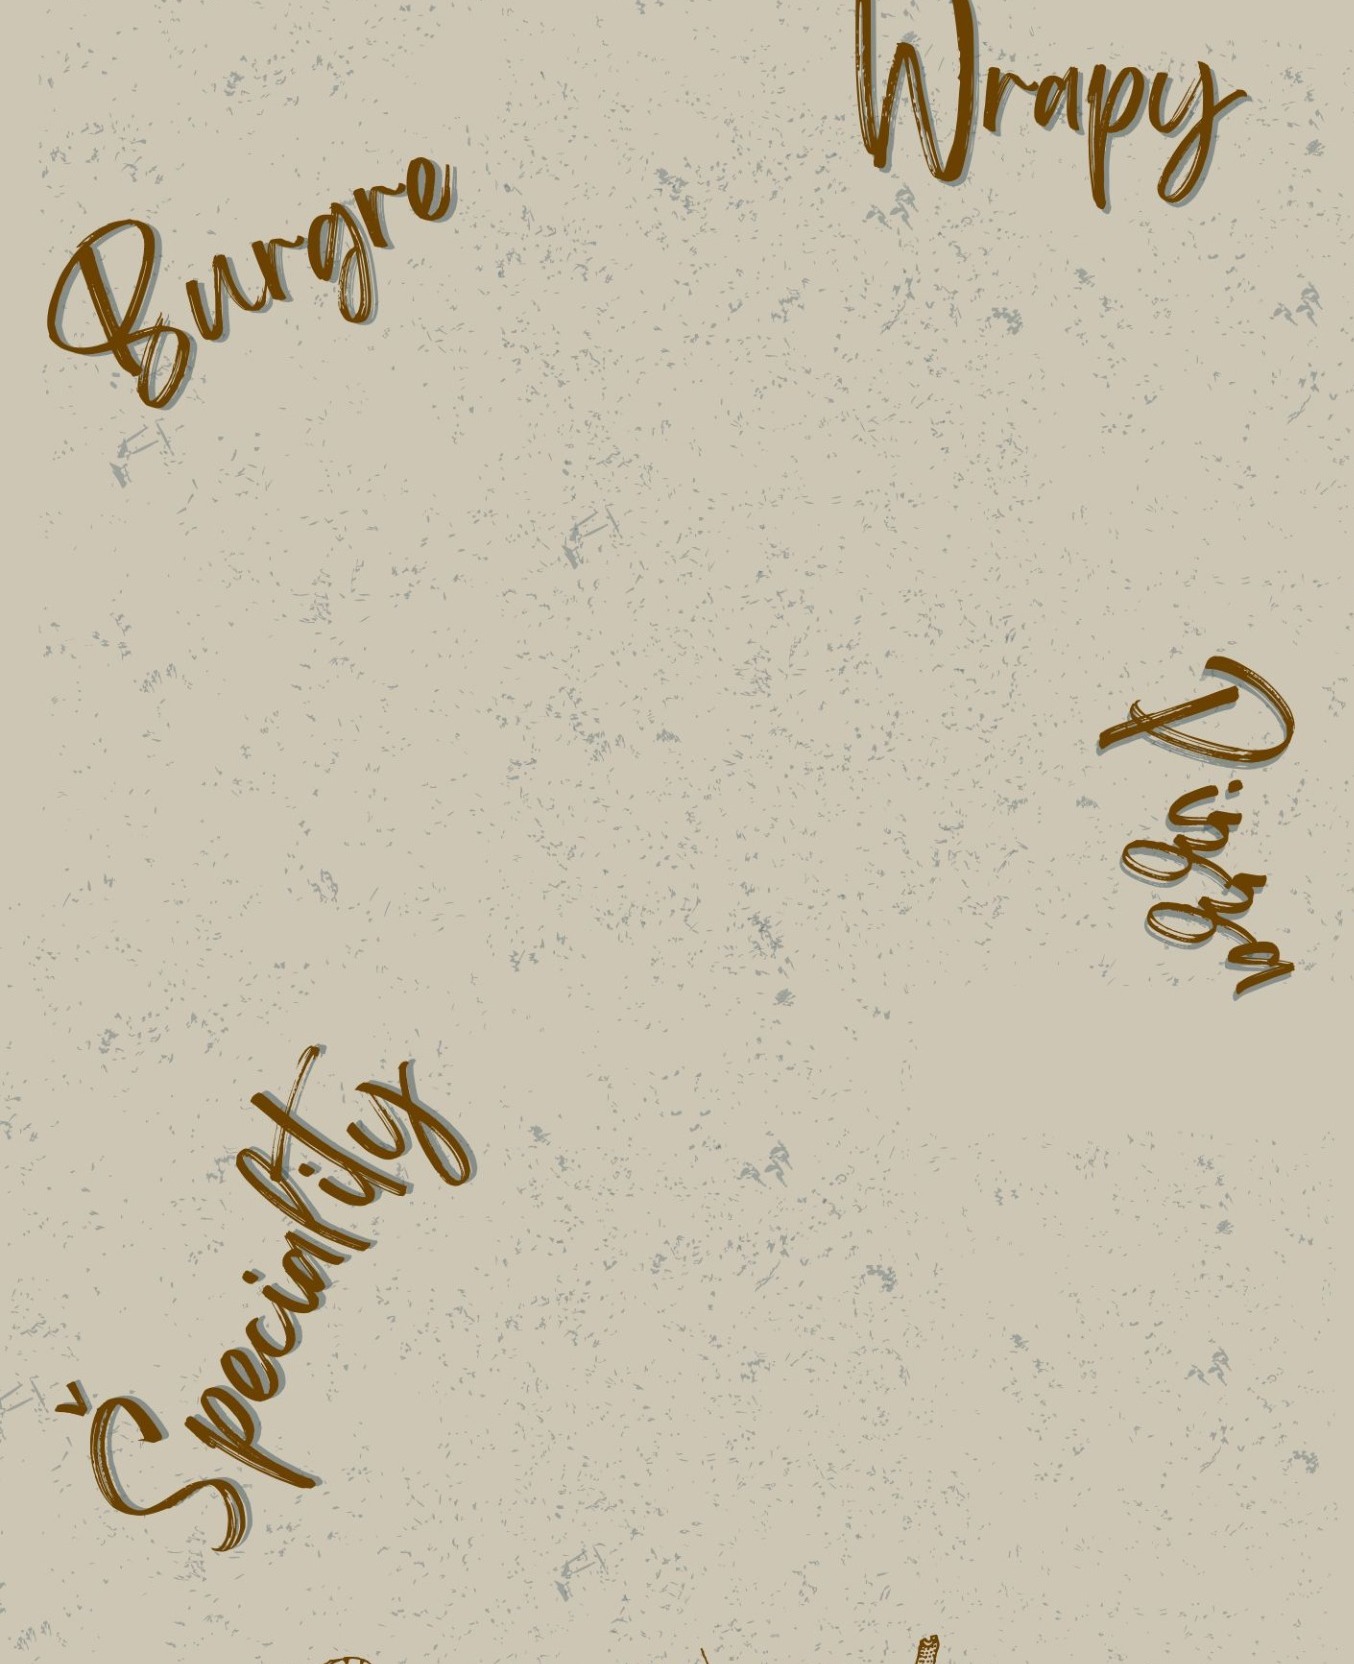 Wrapy
Burgre
Pizza
Špeciality